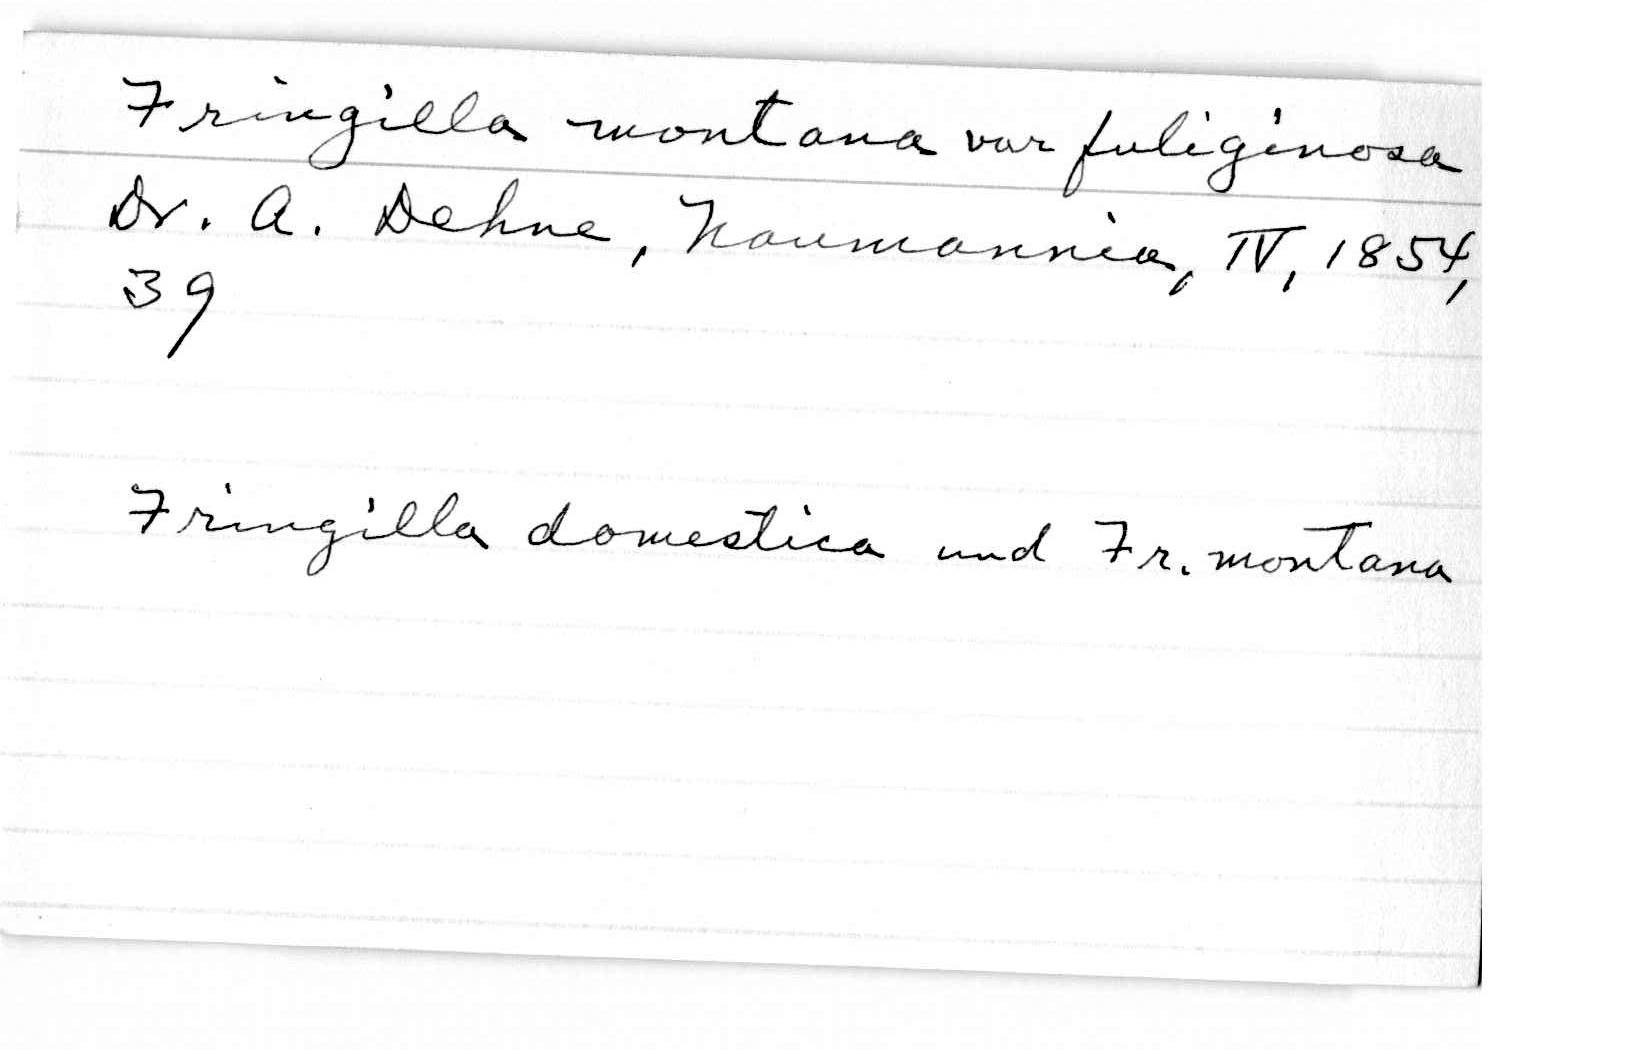 Fringilla montana var fuliginosa
Dr. A. Dehne, Naumannia, IV, 1854,
39
Fringilla domestica und Fr. montana